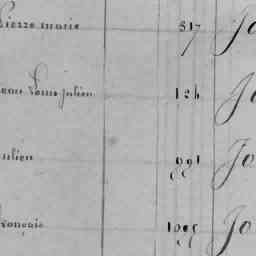 Pierre marie 817 Jo
Louis julien 124 Jo
Julien 991 Jo
françois Jo